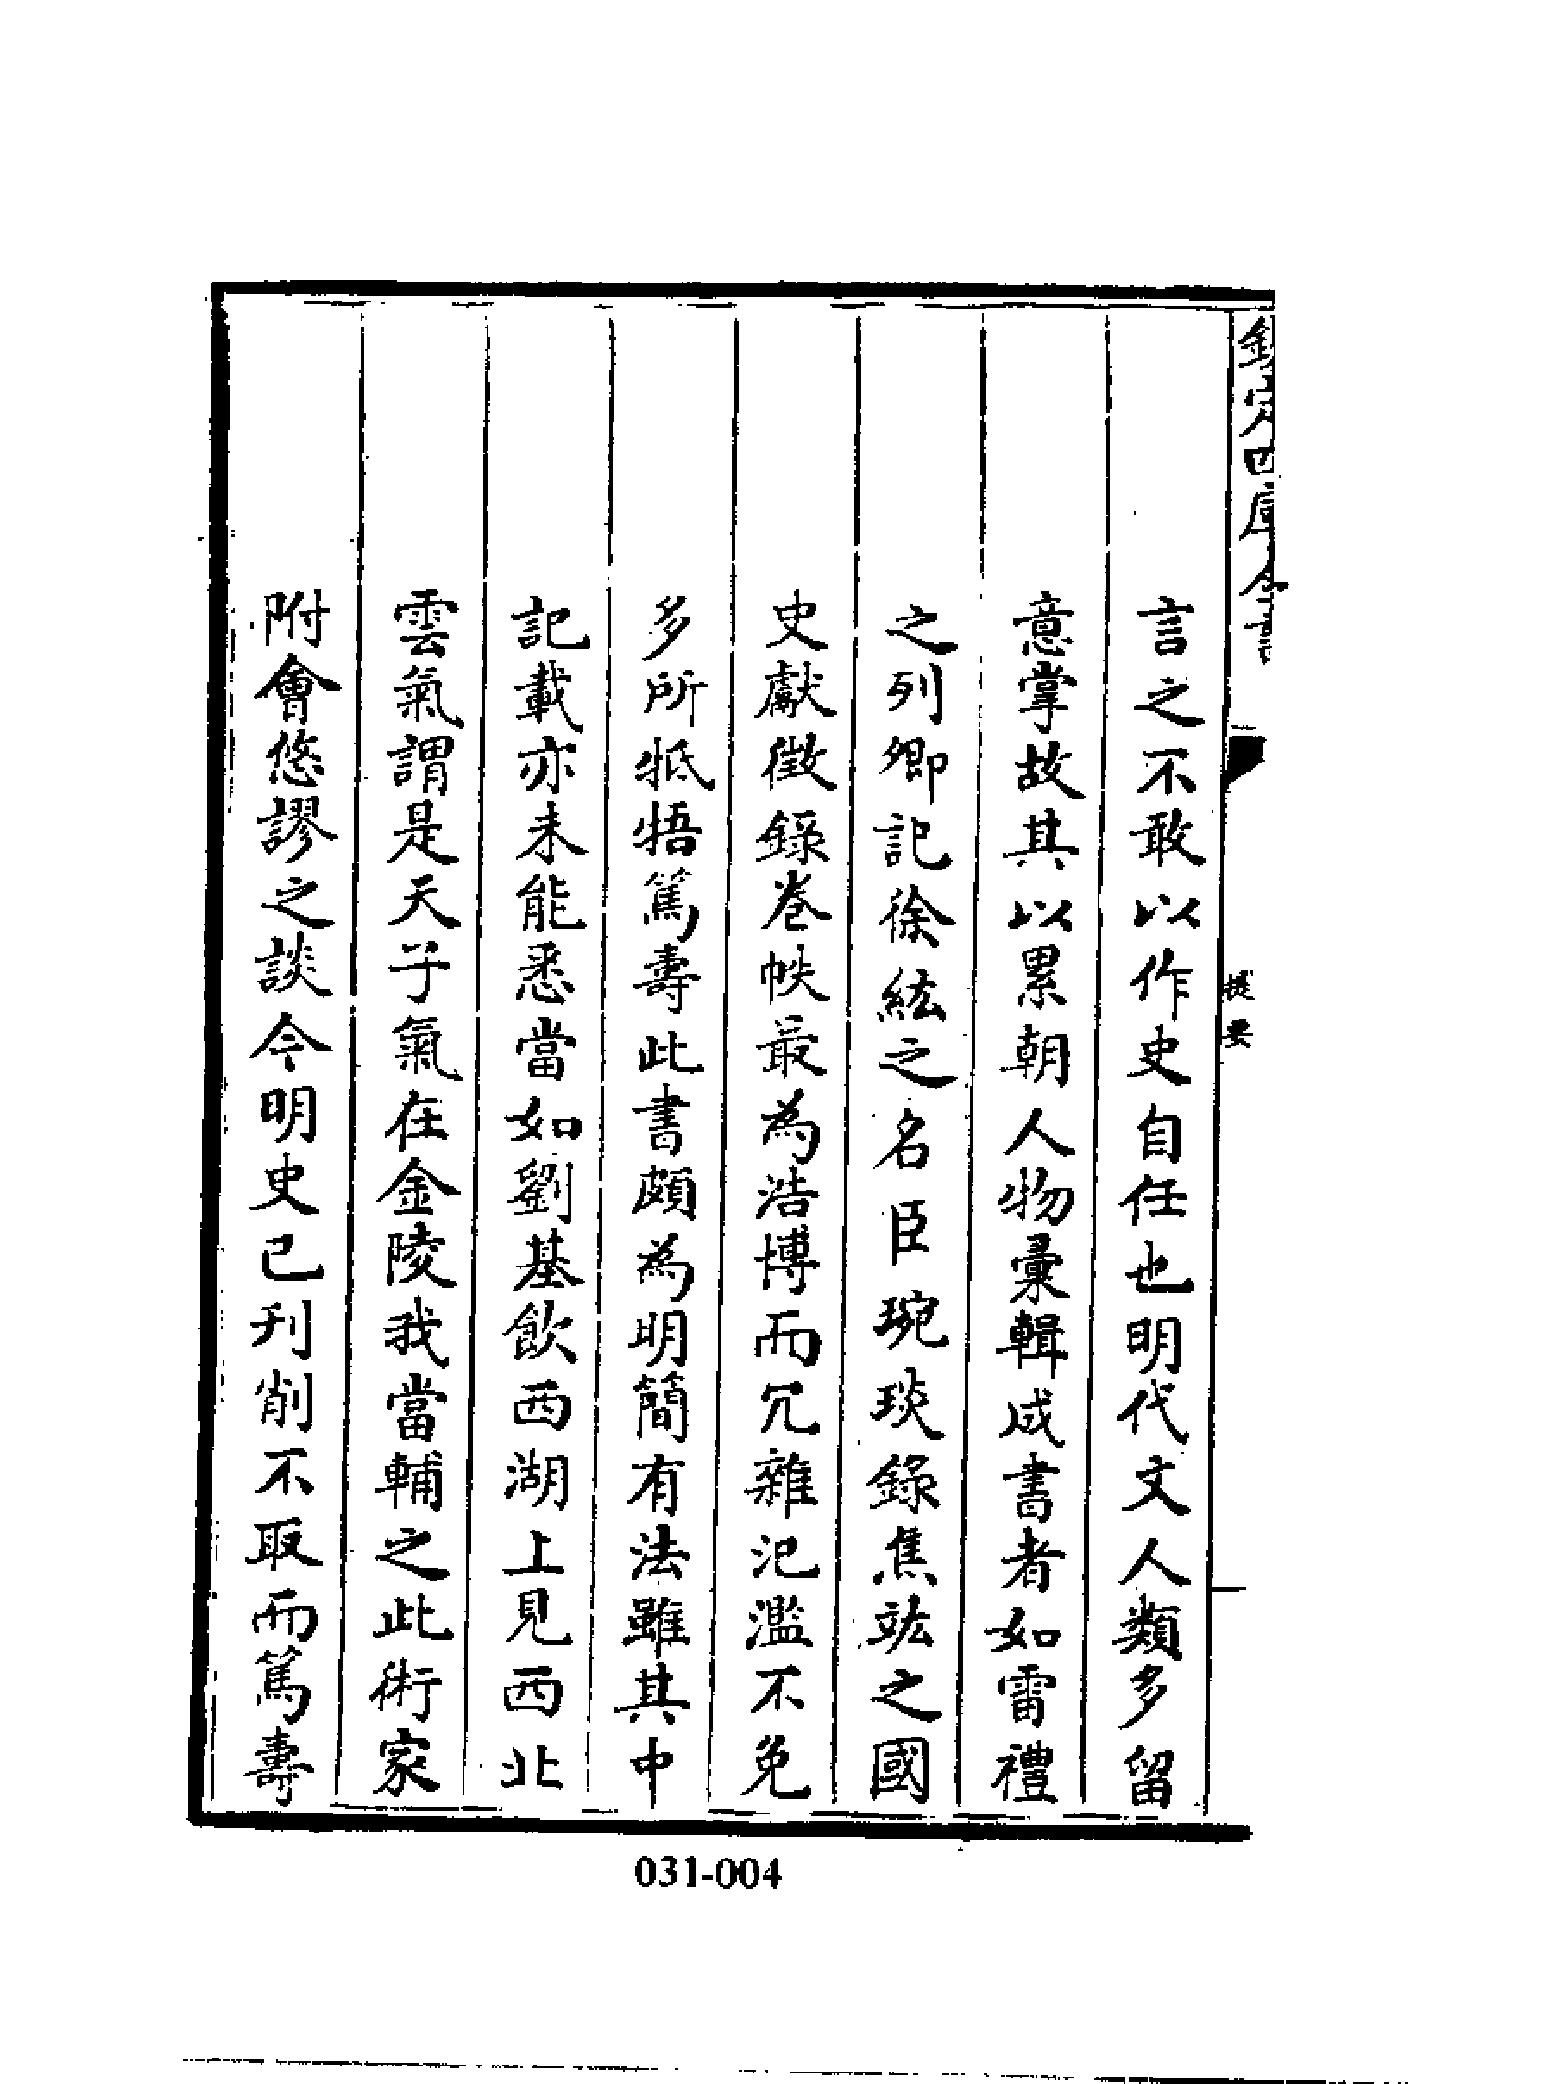 欽定四庫全書
提要
言之不敢以作史自任也明代文人類多留
意掌故其以累朝人物彙輯成書者如雷禮
之列卿記徐紘之名臣琬琰錄焦竑之國
史獻徵錄卷帙最為浩博而冗雜汜濫不免
多所牴牾篤壽此書頗為明簡有法雖其中
記載亦未能悉當如劉基飲西湖上見西北
雲氣謂是天子氣在金陵我當輔之此術家
附會悠謬之談今明史已刋削不取而篤壽
031-004